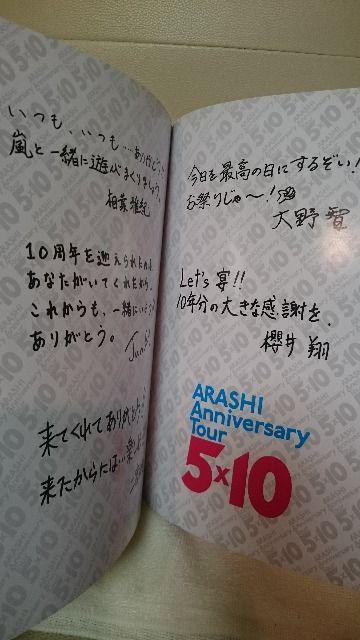 いつも、いつも…ありがとう。
嵐と一緒に遊びまくりましょう。
相葉雅紀
10周年を迎えられたのは、
あなたがいてくれたから。
これからも、一緒に
ありがとう。
Jun.
来てくれてありがとう。
来たからには…
今日を最高の日にするぞい!
お祭りじゃ〜!
大野 智
Let's 宴!!
10年分の大きな感謝を、
櫻井 翔
ARASHI
Anniversary
Tour
5×10